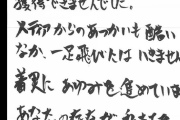 獲得できませんでした。
メディアからのあつかいも酷い
なか、一足飛びにはいきません
着実にあゆみを進めていま
あなたの存在が